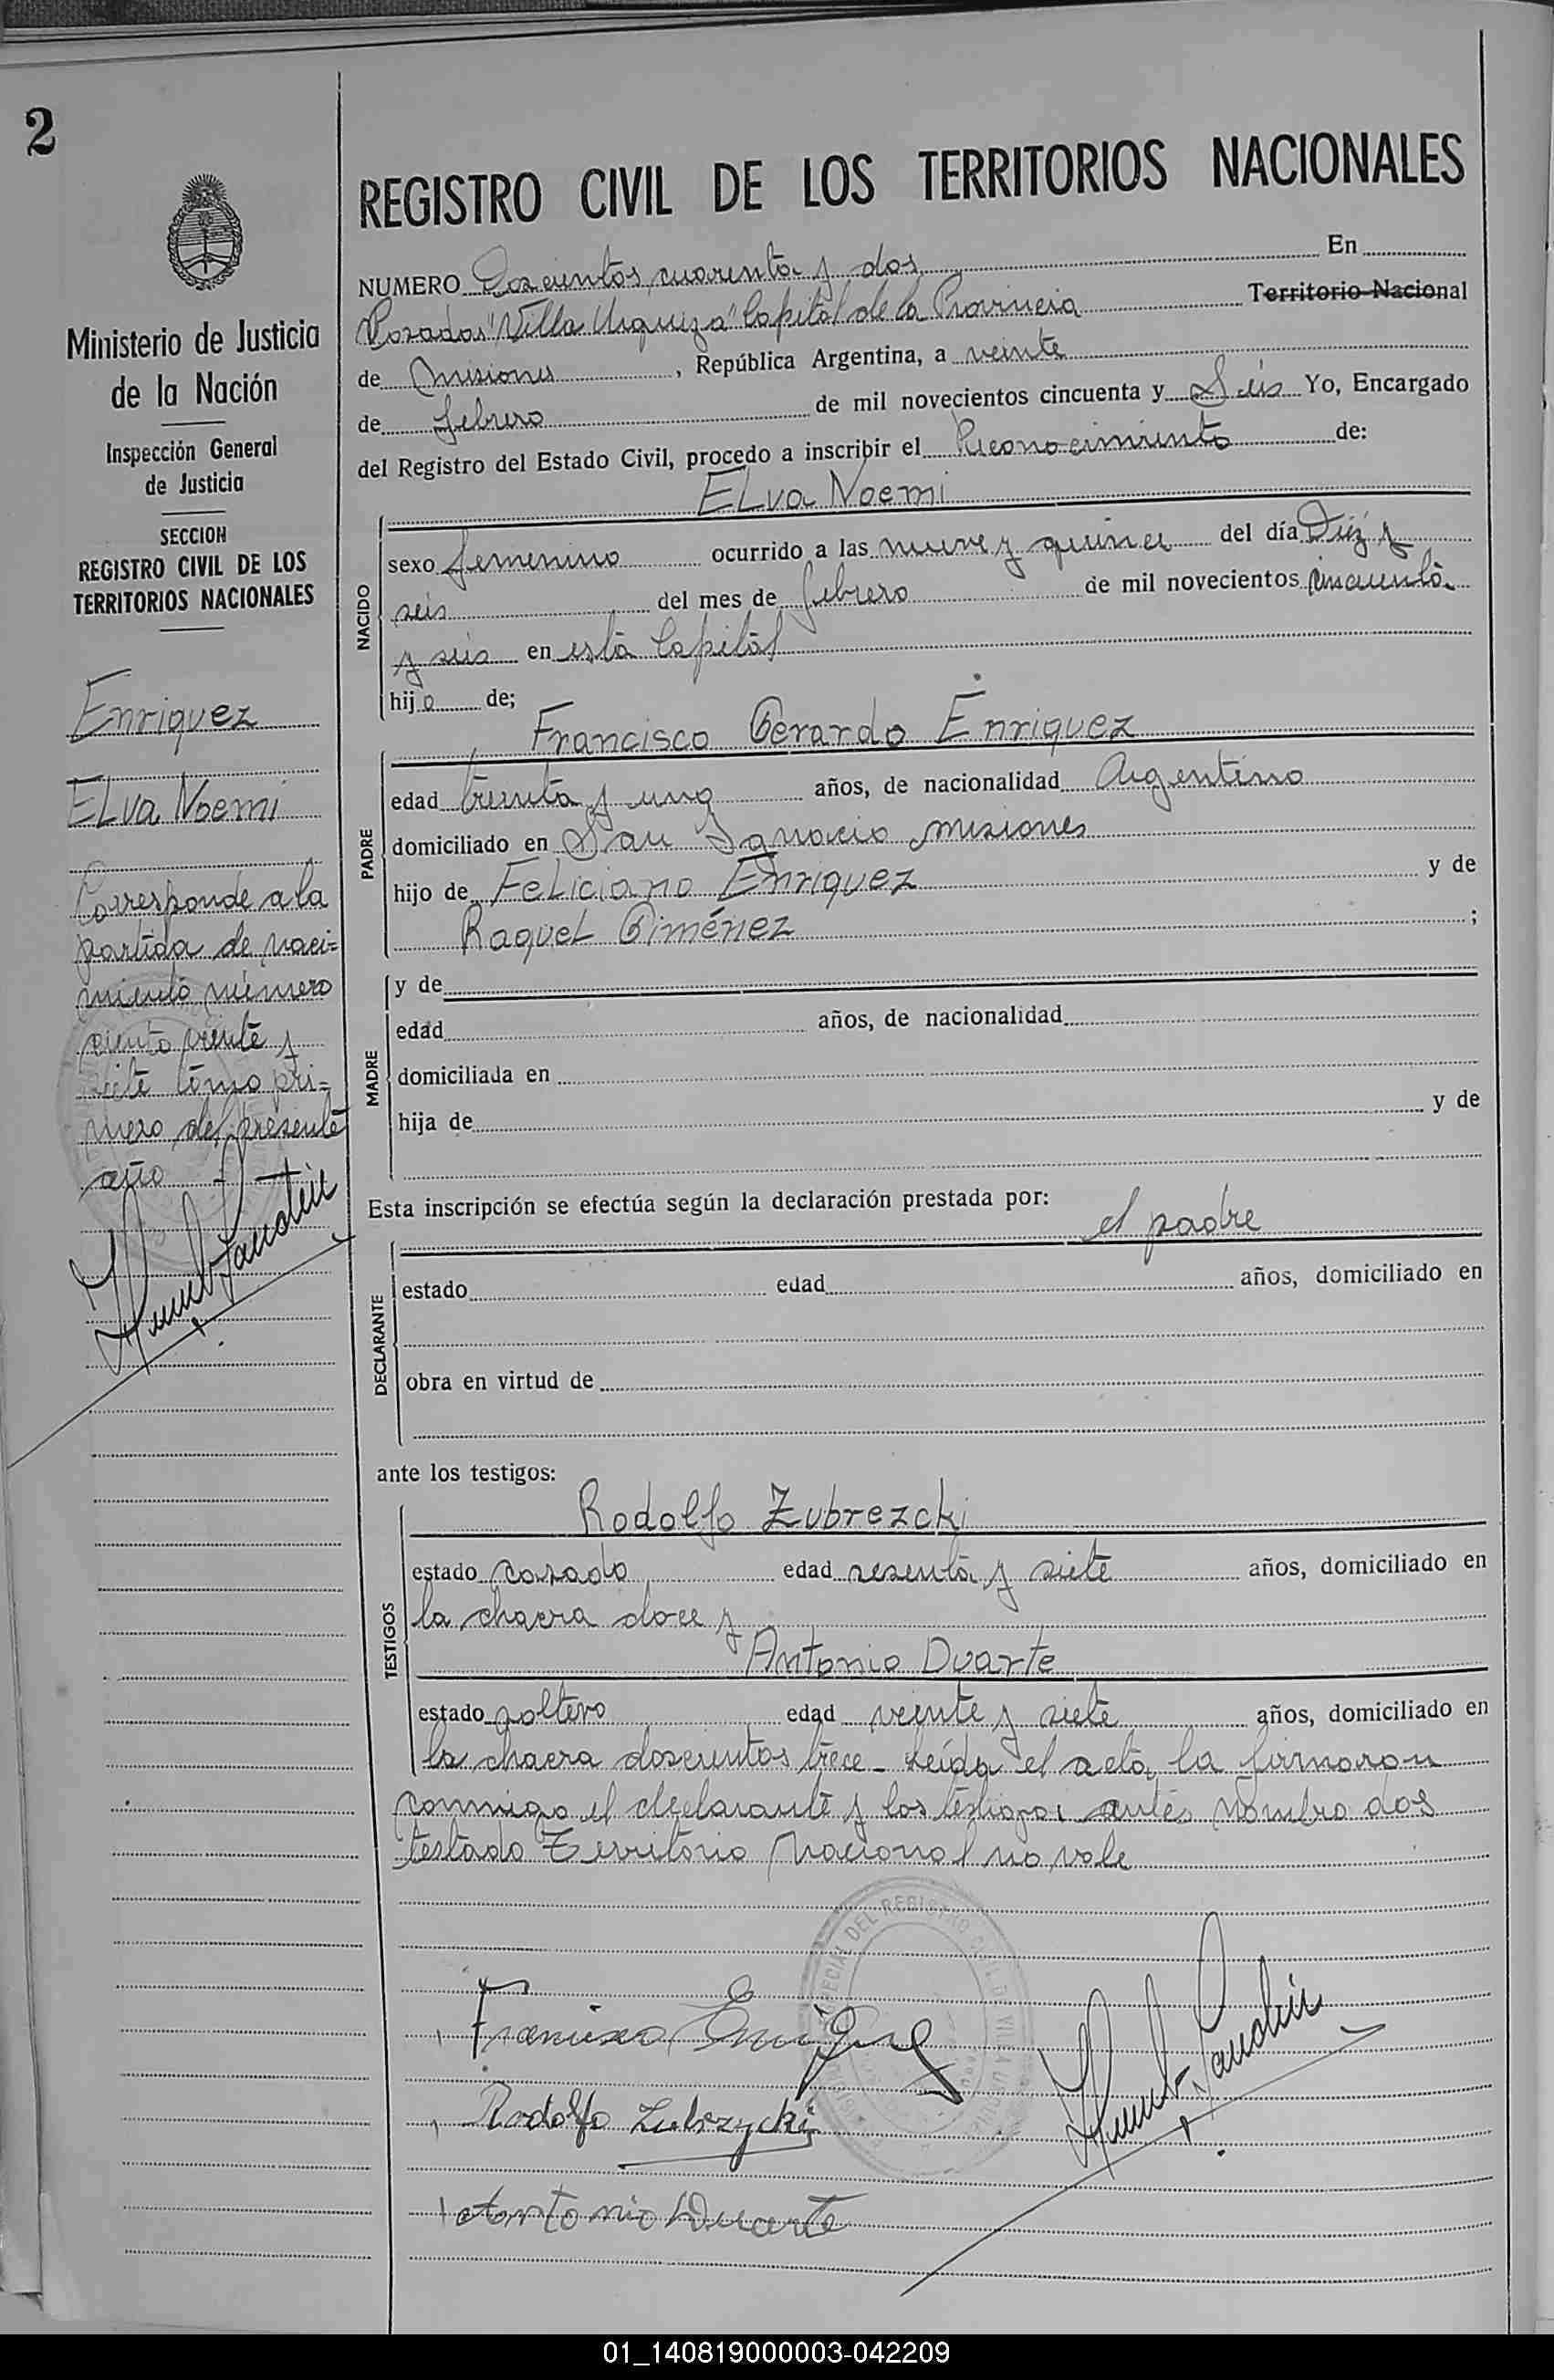 2
REGISTRO CIVIL DE LOS TERRITORIOS NACIONALES
Ministerio de Justicia
de la Nación
Inspección General
de Justicia
SECCION
REGISTRO CIVIL DE LOS
TERRITORIOS NACIONALES
Enriquez
ELva Noemi
Corresponde a la
partida de naci=
miento número
ciento veinte y
siete tomo pri=
mero del presente
año
NUMERO Doscientos cuarenta y dos En
Posadas "Villa Urquiza" Capital de la Provincia Territorio Nacional
de Misiones, República Argentina, a veinte
de febrero de mil novecientos cincuenta y Seis Yo, Encargado
del Registro del Estado Civil, procedo a inscribir el Reconocimiento de:
ELva Noemi
NACIDO
sexo femenino ocurrido a las nueve y quince del día Diéz y
seis del mes de febrero de mil novecientos cincuenta
y seis en esta Capital
hijo de;
Francisco Gerardo Enriquez
PADRE
edad treinta y uno años, de nacionalidad Argentino
domiciliado en San Ignacio Misiones
hijo de Feliciano Enriquez y de
RaqueL Giménez ;
MADRE
y de
edad años, de nacionalidad
domiciliada en
hija de y de
Esta inscripción se efectúa según la declaración prestada por:
el padre
DECLARANTE
estado edad años, domiciliado en
obra en virtud de
ante los testigos:
Rodolfo Zubrezcki
TESTIGOS
estado casado edad sesenta y siete años, domiciliado en
la chacra doce y
Antonio Duarte
estado soltero edad veinte y siete años, domiciliado en
la chacra doscientos trece - Leída el acta, la firmaron
conmigo el declarante y los testigos antes nombrados
testado Territorio Nacional no vale
Francisco Enriquez
Rodolfo Zubrzycki
Antonio Duarte
01_140819000003-042209